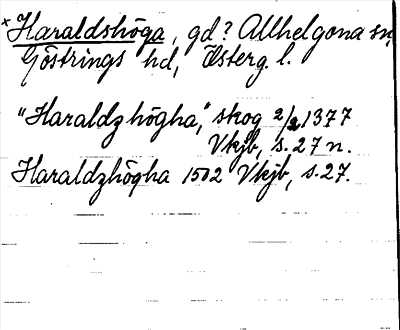 *Haraldshöga, gd? Allhelgona sn,
Göstrings hd, Österg. l.
"Haraldzhögha," skog 2/2 1377
Vkjb, s. 27 n.
Haraldzhögha 1502 Vkjb, s. 27.